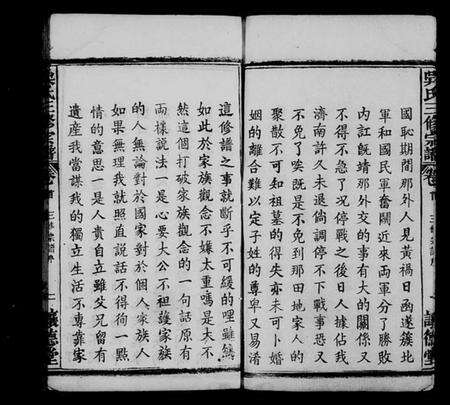 國恥期間那外人見黃禍日函遂簇北
軍和國民軍奮鬬近來両軍分了勝敗
內訌旣靖那外交的事有大的關係又
不得不急了況停戰之後日人據佔我
濟南許久未退倘調停不下戰事恐又
不免了唉旣是不免到那田地家人的
聚散不可知祖墓的得失亦未可卜婚
姻的離合難以定子姓的尊卑又易淆
這修譜之事就斷乎不可緩的哩雖然
如此於家族觀念不嫌太重嗎是大不
然這個打破家族觀念的一句話原有
兩樣說法一是心要大公不袒護家族
的人無論對於國家對於個人家族人
如果無理我就照直說話不得徇一點
情的意思一是人貴自立雖父兄留有
遺産我當謀我的獨立生活不專靠家
吳氏三修宗譜
卷首